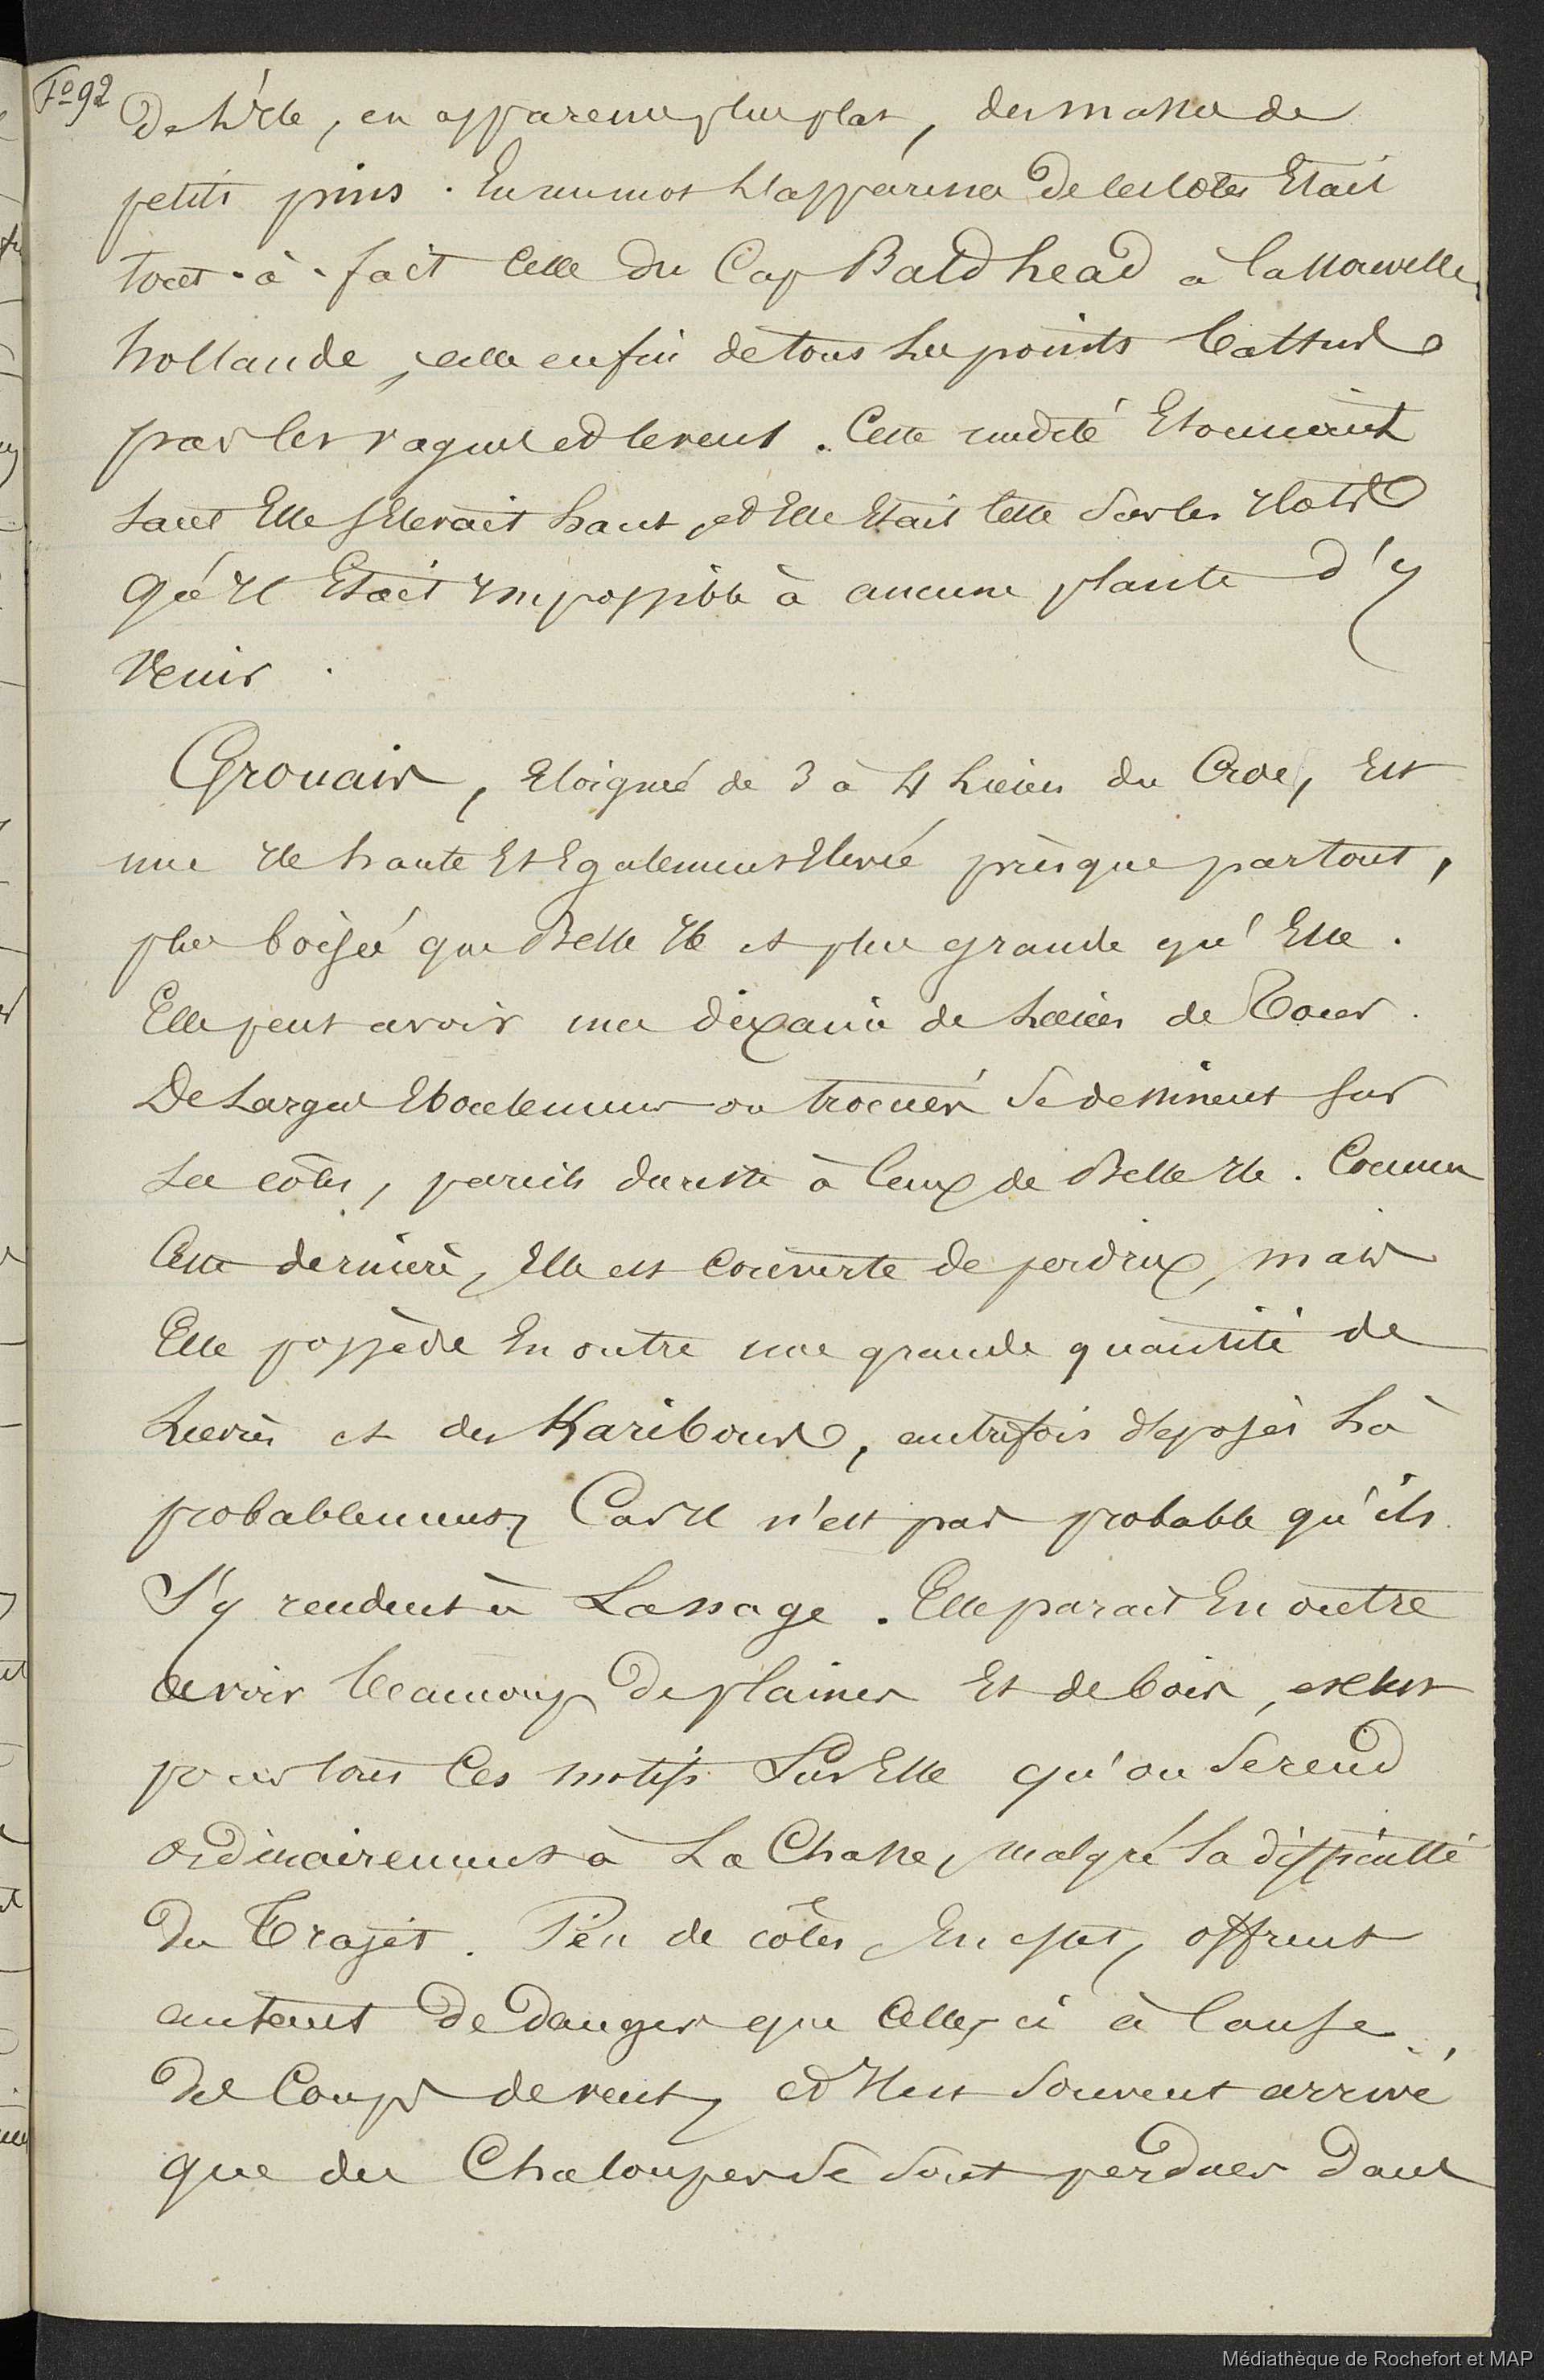 Fo 92
De l'Ile, en apparence plus plat, des masses de
petits pins. En un mot L'apparence De les Côtes Etait
tout-à-fait Celle du Cap Bald head à la Nouvelle
hollande, celle enfin de tous Les points battus
par les vagues et le vent. Cette nudité Etonnante
tant Elle s'élevait haut, et Elle Etait telle Sur les Ilots
Qu'Il Etait Impossible à aucune plante d'y
Venir.
Grouais, Eloigné de 3 à 4 Lieues du Croc, Est
une Ile haute Et Egalement Elevée presque partout,
plus boisée que Belle Ile et plus grande qu'Elle.
Elle peut avoir une dixaine de Lieues de Tour.
De Larges Eboulements ou trouées Se dessinent sur
Les côtes, pareils du reste à Ceux de Belle Ile. Comme
Cette dernière, Elle est Couverte de perdrix, mais
Elle possède En outre une grande quantité de
Lièvres et des Karibous, autrefois déposés Là
probablement, Car Il n'est pas probable qu'ils
S'y rendent à La nage. Elle parait En outre
avoir beaucoup De plaines Et de bois, et c'est
pour tous Ces motifs Sur Elle qu'on Se rend
ordinairement à La Chasse, malgré la difficulté
Du Trajet. Peu de côtes, En effet, offrent
autant De Danger que Celles ci à Cause
Des Coups de vent, et Il est Souvent arrivé
que des Chaloupes Se Sont perdues Dans
Médiathèque de Rochefort et MAP